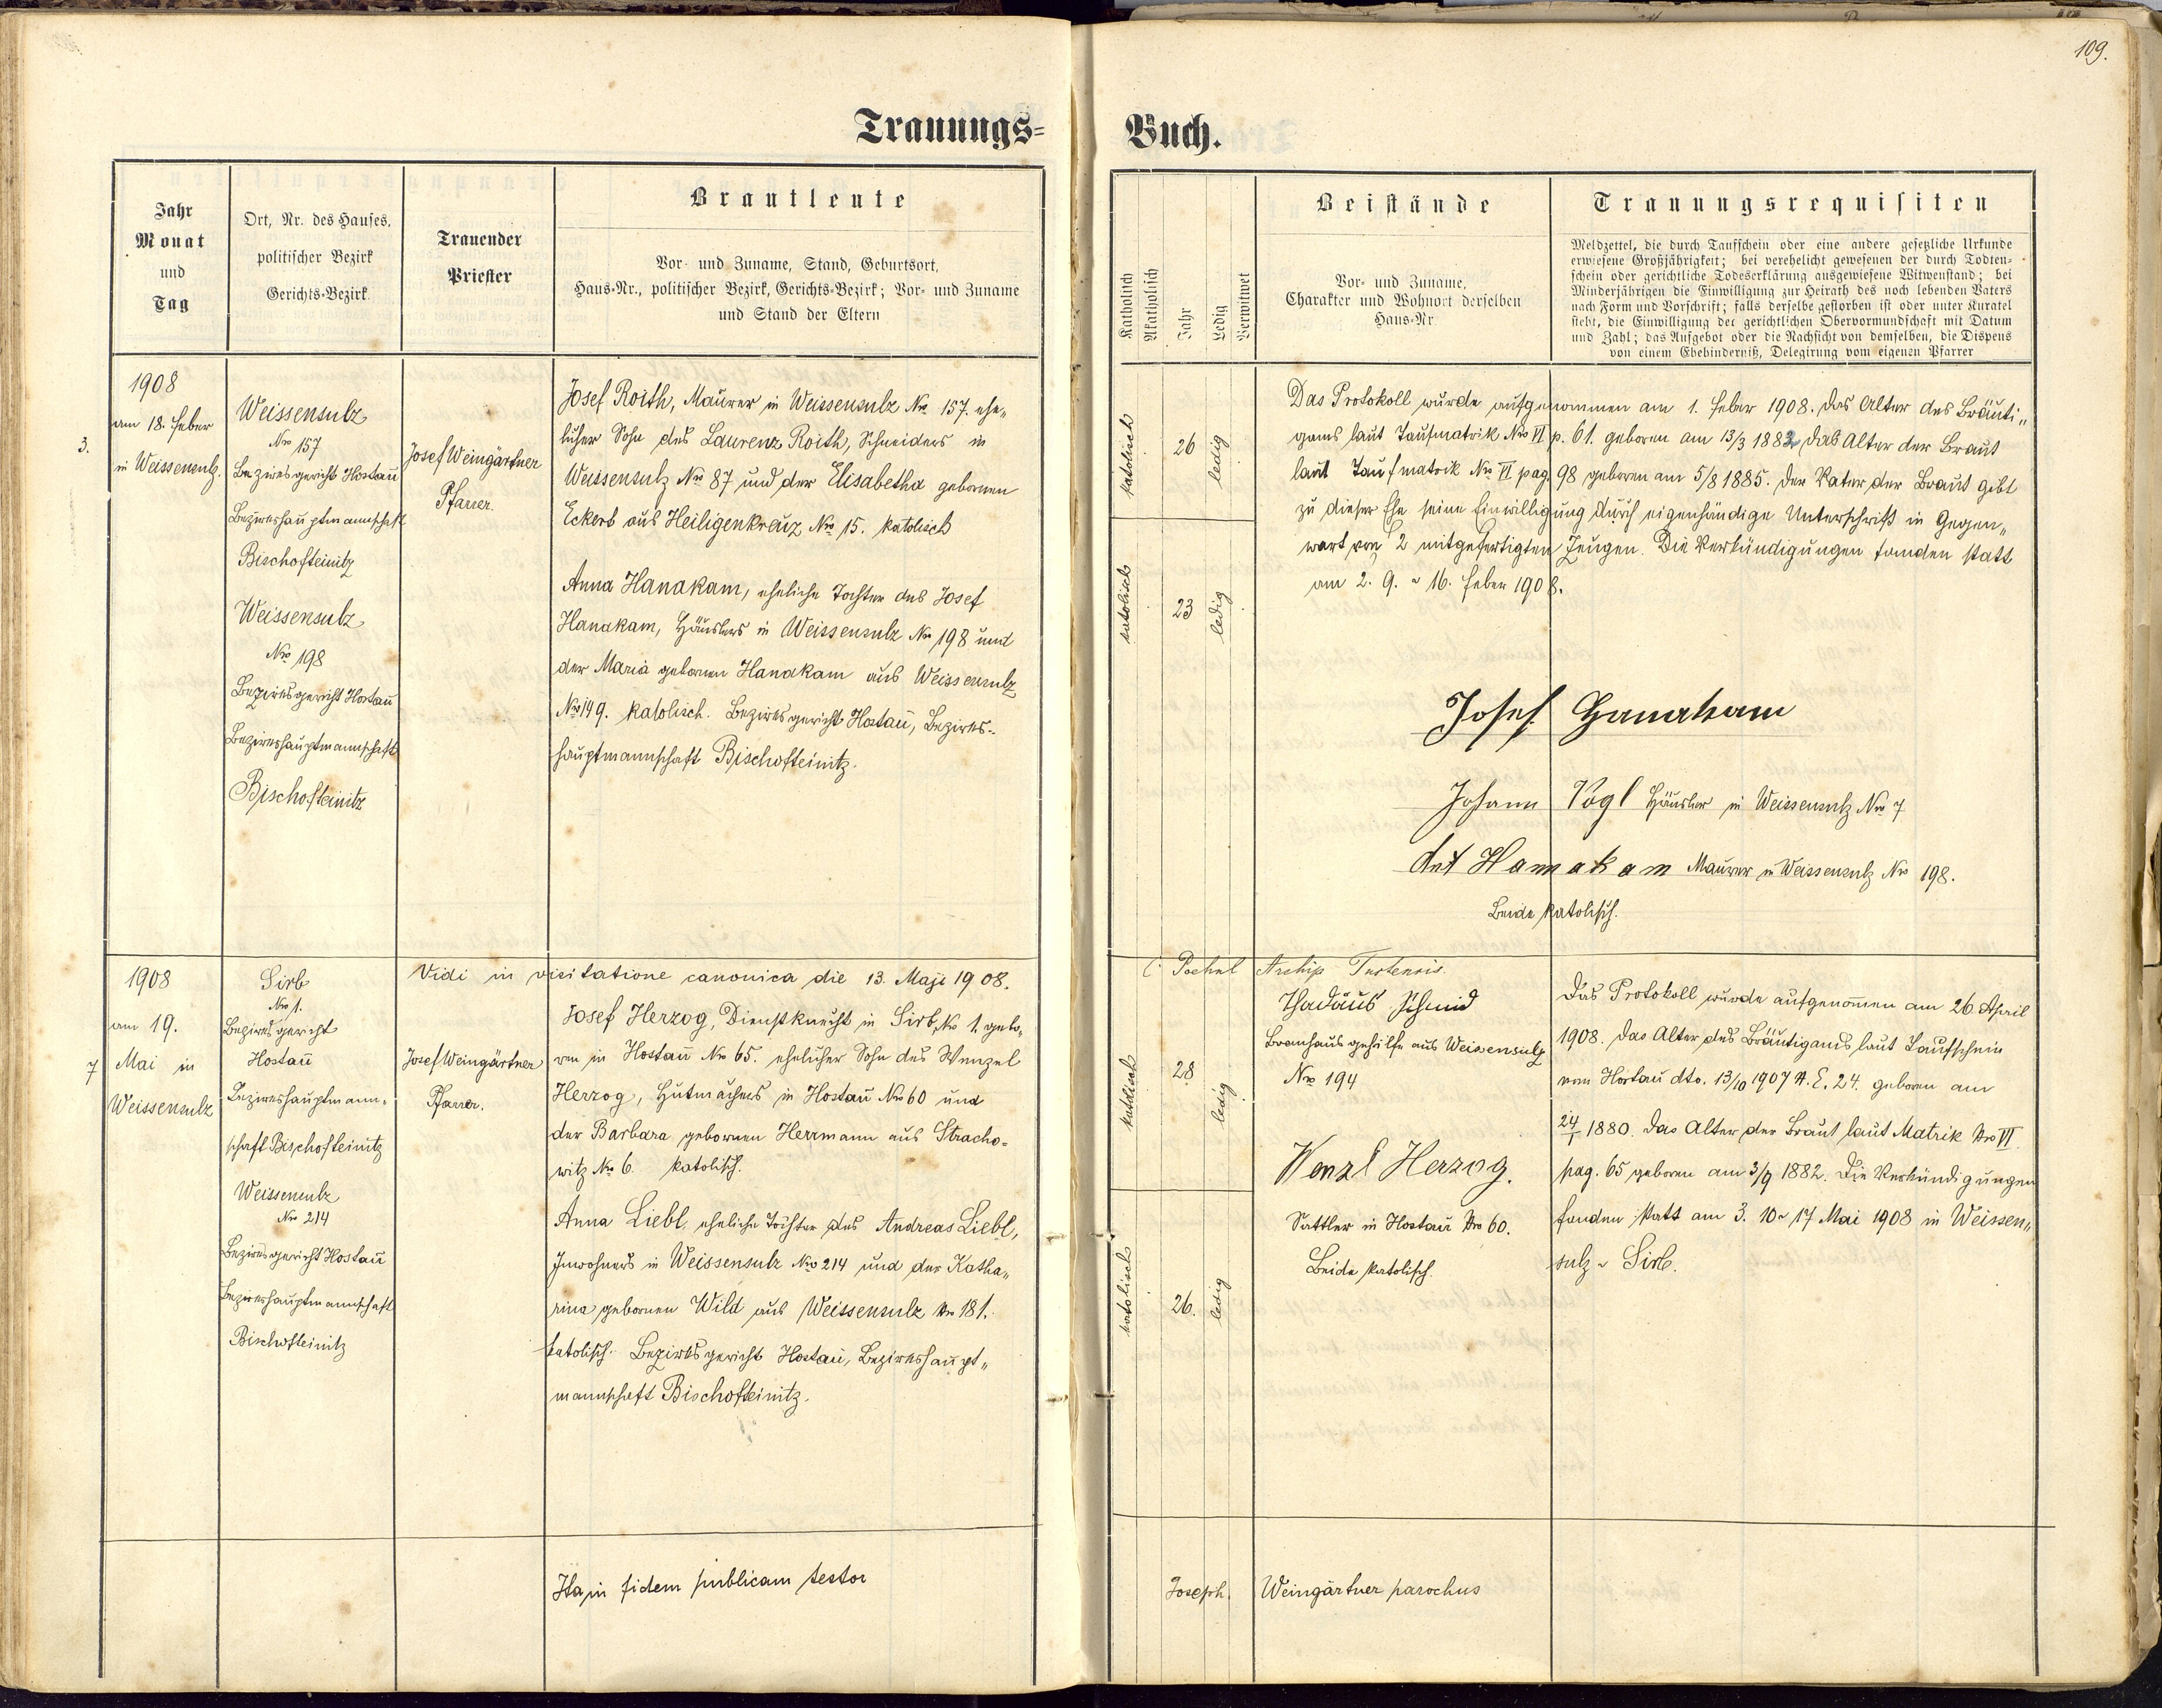 109.
Trauungs=
Buch.
Jahr
Monat
und
Tag
Ort, Nr. des Hauses,
politischer Bezirk
Gerichts-Bezirk
Trauender
Priester
Brautleute
Vor- und Zuname, Stand, Geburtsort,
Haus-Nr., politischer Bezirk, Gerichts-Bezirk; Vor- und Zuname
und Stand der Eltern
Katholisch
Akatholisch
Jahr
Ledig
Verwitwet
Beistände
Vor- und Zuname,
Charakter und Wohnort derselben
Haus-Nr.
Trauungsrequisiten
Meldzettel, die durch Taufschein oder eine andere gesetzliche Urkunde
erwiesene Großjährigkeit; bei verehelicht gewesenen der durch Todten-
schein oder gerichtliche Todeserklärung ausgewiesene Witwenstand; bei
Minderjährigen die Einwilligung zur Heirath des noch lebenden Vaters
nach Form und Vorschrift; falls derselbe gestorben ist oder unter Kuratel
steht, die Einwilligung der gerichtlichen Obervormundschaft mit Datum
und Zahl; das Aufgebot oder die Nachsicht von demselben, die Dispens
von einem Ehehinderniß, Delegirung vom eigenen Pfarrer
3.
1908
am 18. Feber
in Weissensulz.
Weissensulz
Nro 157
Bezirksgericht Hostau
Bezirkshauptmannschaft
Bischofteinitz
Weissensulz
Nro 198
Bezirksgericht Hostau
Bezirkshauptmannschaft
Bischofteinitz
Josef Weingärtner
Pfarrer.
Josef Roith, Maurer in Weissensulz Nro 157. ehe„
licher Sohn des Laurenz Roith, Schneiders in
Weissensulz Nro 87 und der Elisabetha gebornen
Eckert aus Heiligenkreuz Nro 15. katolisch
Anna Hanakam, eheliche Tochter des Josef
Hanakam, Häuslers in Weissensulz Nro 198 und
der Maria gebornen Hanakam aus Weissensulz
Nro 149. katolisch. Bezirksgericht Hostau, Bezirks-
hauptmannschaft Bischofteinitz.
katolisch
26
ledig
katolisch
23
ledig
Das Protokoll wurde aufgenommen am 1. Feber 1908. Das Alter des Bräuti„
gams laut Taufmatrik Nro VI p. 61. geboren am 13/3 1882 das Alter der Braut
laut Taufmatrik Nro VI pag. 98 geboren am 5/8 1885. Der Vater der Braut gibt
zu dieser Ehe seine Einwilligung durch eigenhändige Unterschrift in Gegen„
wart von 2 mitgefertigten Zeugen. Die Verkündigungen fanden statt
am 2. 9. u 16. Feber 1908.
Josef Hanakam
Johann Vogl Häusler in Weissensulz Nro 7
Ant Hanakam Maurer in Weissensulz Nro 198.
Beide katolisch.
Vidi in visitatione canonica die 13. Maji 1908.
7
1908
am 19.
Mai in
Weissensulz
Sirb
Nro 1.
Bezirksgericht
Hostau
Bezirkshauptmann-
schaft Bischofteinitz
Weissensulz
Nro 214
Bezirksgericht Hostau
Bezirkshauptmannschaft
Bischofteinitz
Josef Weingärtner
Pfarrer.
Josef Herzog, Dienstknecht in Sirb, No 1. gebo-
ren in Hostau No 65. ehelicher Sohn des Wenzel
Herzog, Hutmachers in Hostau Nro 60 und
der Barbara gebornen Herrmann aus Stracho-
witz No 6. katolisch.
Anna Liebl, eheliche Tochter des Andreas Liebl,
Inwohners in Weissensulz Nro 214 und der Katha„
rina gebornen Wild aus Weissensulz Nro 181.
katolisch. Bezirksgericht Hostau, Bezirkshaupt„
mannschaft Bischofteinitz.
katolisch
28
ledig
katolisch
26.
ledig
Thadäus Schmid
Brauhausgehilfe aus Weissensulz
Nro 194
Wenzl Herzog.
Sattler in Hostau Nro 60.
Beide katolisch.
Das Protokoll wurde aufgenommen am 26. April
1908. Das Alter des Bräutigams laut Taufschein
von Hostau dto. 13/10 1907 N. E. 24. geboren am
24/1 1880. Das Alter der Braut laut Matrik Nro VI
pag. 65 geboren am 3/9 1882. Die Verkündigungen
fanden statt am 3. 10 u 17 Mai 1908 in Weissen„
sulz u Sirb.
Ita in fidem publicam testor
Joseph. Weingärtner parochus